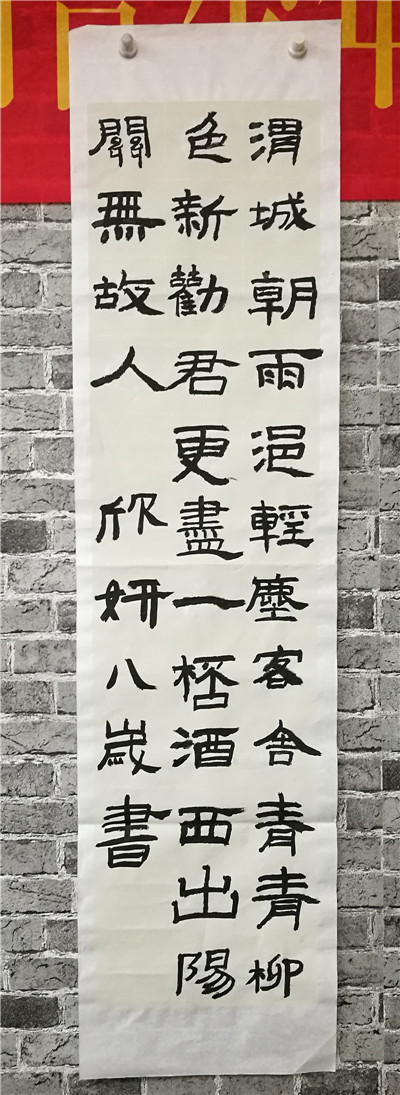 渭城朝雨浥輕塵客舍青青柳
色新勸君更盡一桮酒西出陽
關無故人 欣妍八歲書